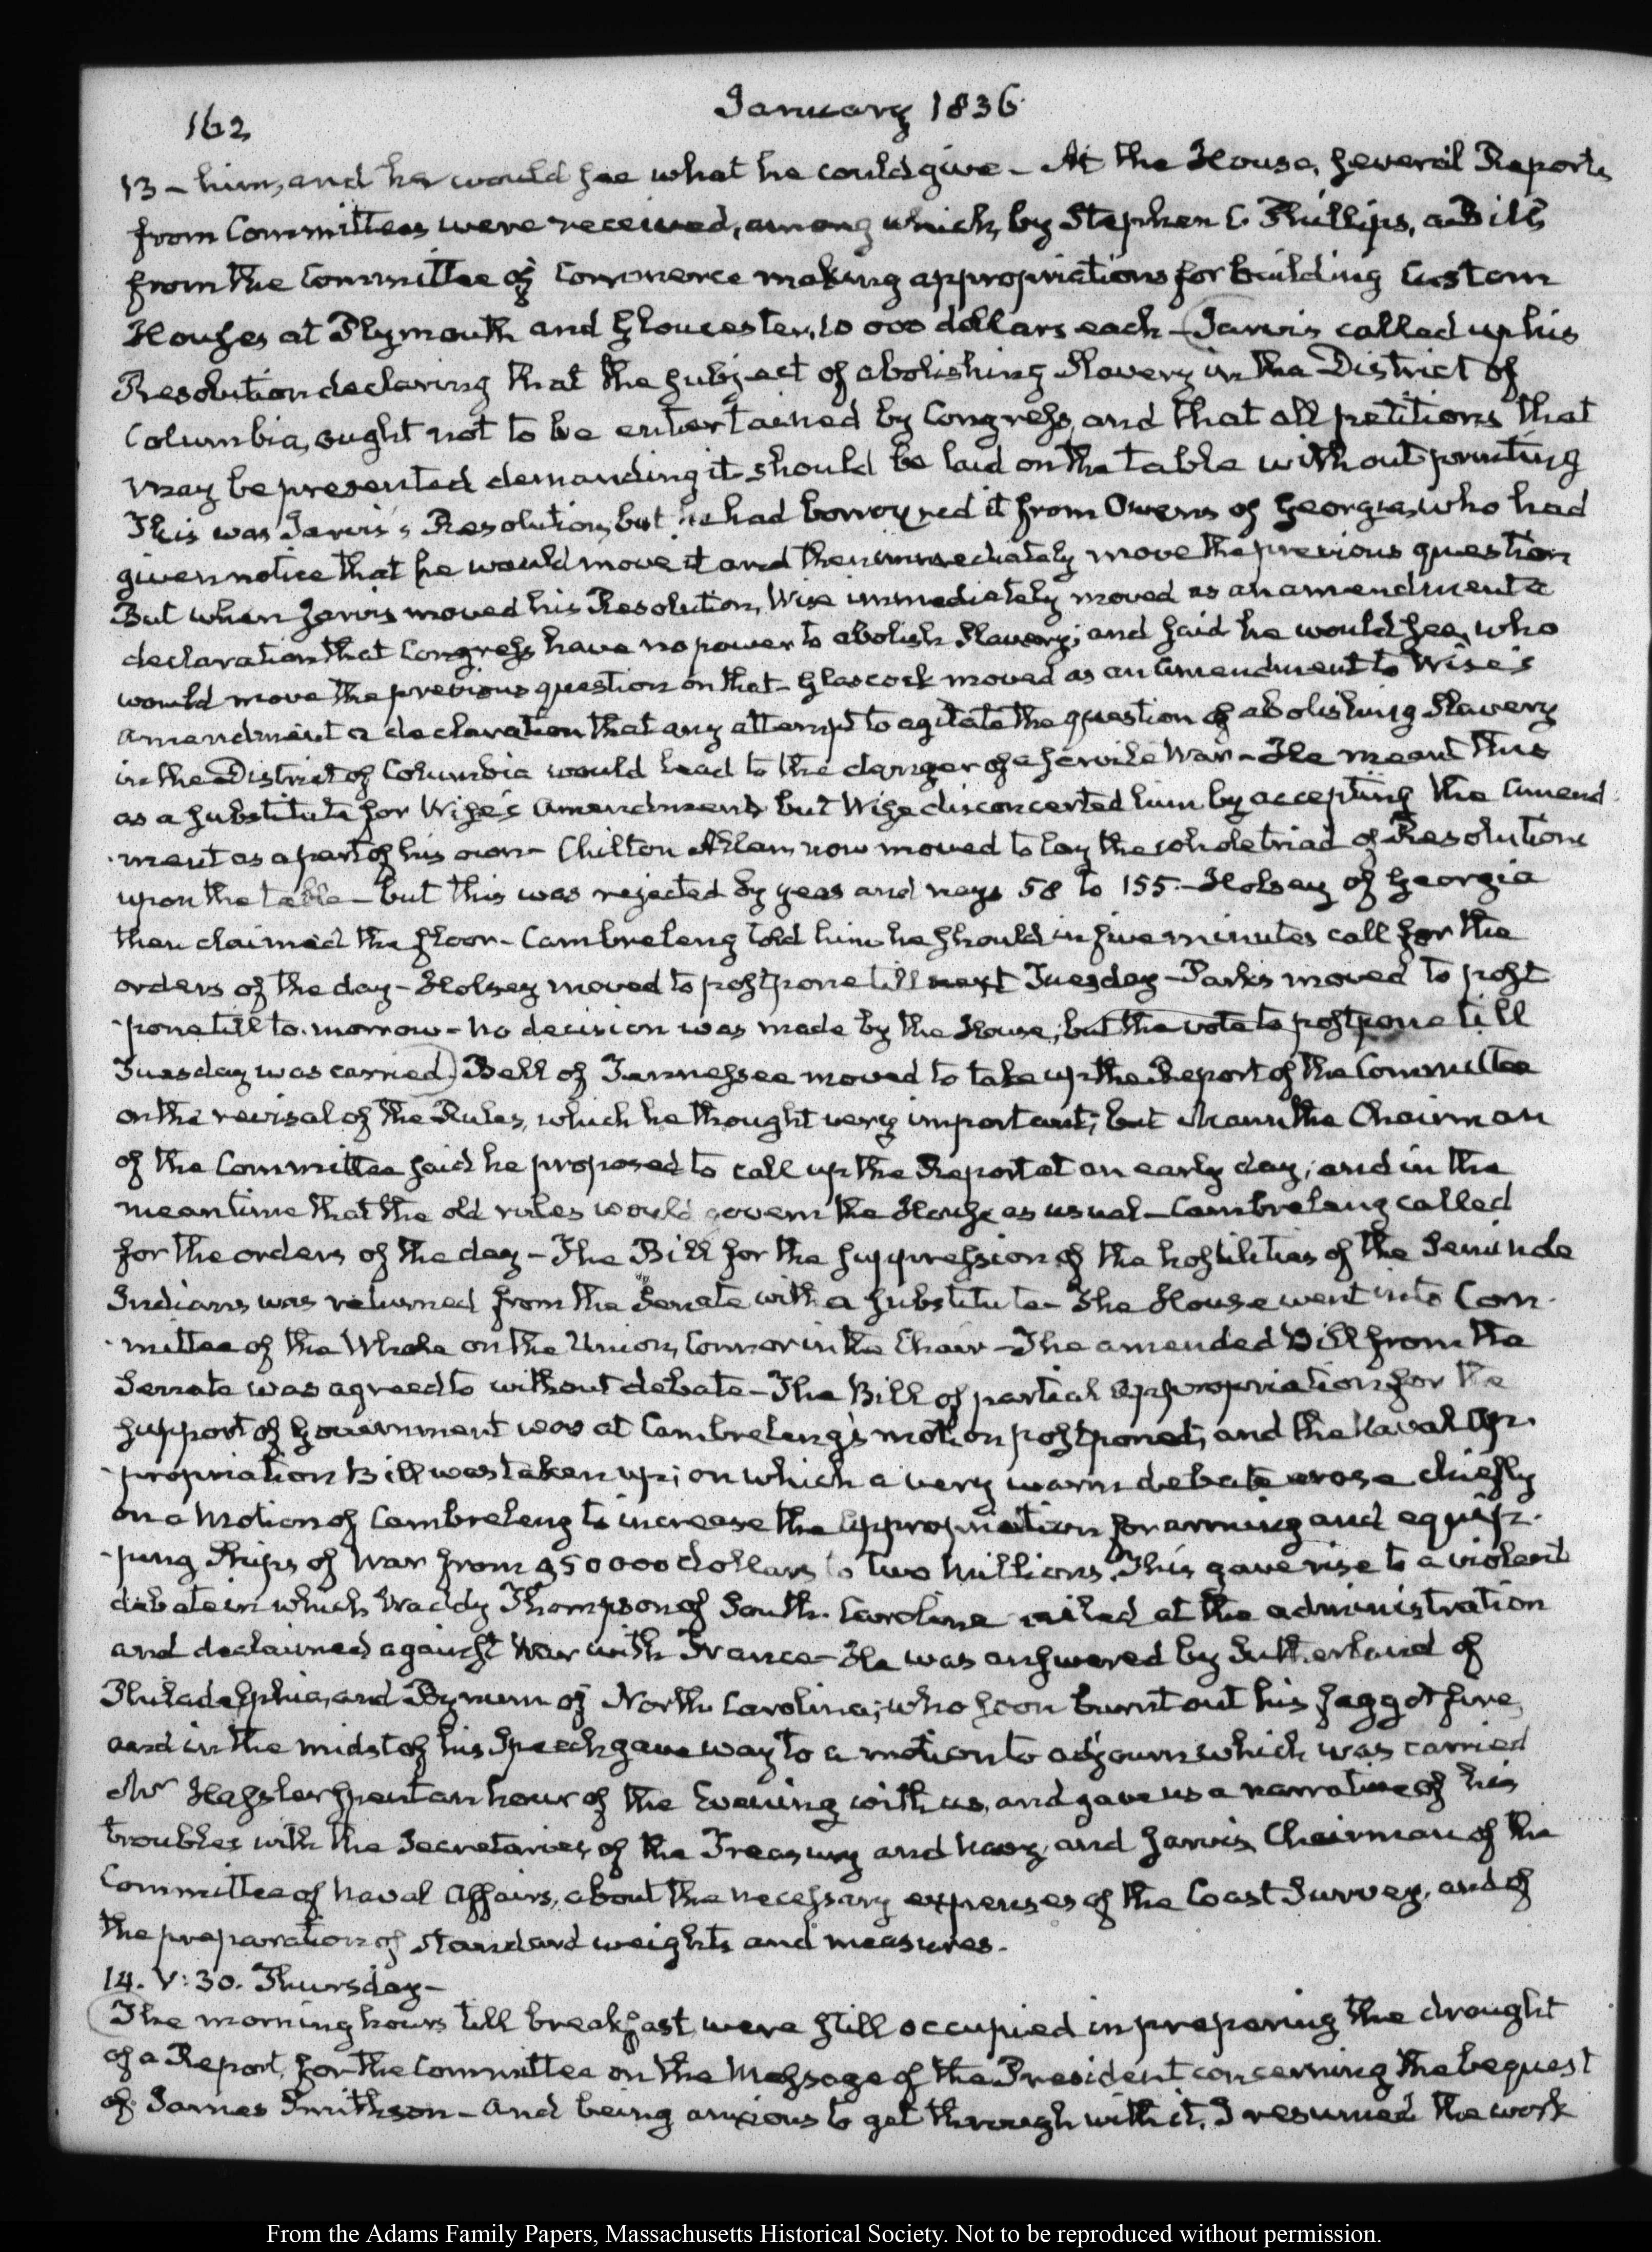 162
January 1836
13 – him, and he would see what he could give – At the House, several Reports
from Committees were received, among which, by Stephen C Phillips, a Bill
from the Committee of Commerce making appropriations for building Custom
Houses at Plymouth and Gloucester, 10 000 dollars each – Jarvis called up his
Resolution declaring that the subject of abolishing Slavery in the District of
Columbia, ought not to be entertained by Congress, and that all petitions that
may be presented demanding it should be laid on the table without printing
This was Jarvis's Resolution, but he had borrowed it from Owens of Georgia, who had
given notice that he would move it and then immediately move the previous question
But when Jarvis moved his Resolution, Wise immediately moved as an amendment a
declaration that Congress have no power to abolish Slavery; and said he would see, who
would move the previous question on that – Glascock moved as an amendment to Wise's
amendment a declaration that any attempt to agitate the question of abolishing Slavery
in the District of Columbia would lead to the danger of a servile War – He meant this
as a substitute for Wise's amendment, but Wise disconcerted him by accepting the amend-
-ment as a part of his own – Chilton Allan now moved to lay the whole triad of Resolutions
upon the table – but this was rejected by yeas and nays 58 to 155 – Holsey of Georgia
then claimed the floor – Cambreleng told him he should in five minutes call for the
orders of the day – Holsey moved to postpone till next Tuesday – Parks moved to post
-pone till to-morrow – no decision was made by the House; but the vote to postpone till
Tuesday was carried) Bell of Tennessee moved to take up the Report of the Committee
on the revisal of the Rules, which he thought very important; but Mann the Chairman
of the Committee said he proposed to call up the Report at an early day; and in the
meantime that the old rules would govern the House as usual – Cambreleng called
for the orders of the day – The Bill for the suppression of the hostilities of the Seminole
Indians was returned from the Senate with a substitute – The House went into Com-
-mittee of the Whole on the Union, Connor in the Chair – The amended Bill from the
Senate was agreed to without debate – The Bill of partial appropriation for the
support of Government was at Cambreleng's motion postponed, and the Naval Ap-
-propriation Bill was taken up; on which a very warm debate arose chiefly
on a motion of Cambreleng to increase the appropriation for arming and equip-
-ping Ships of War from 950 000 dollars to two Millions. This gave rise to a violent
debate in which Waddy Thompson of South-Carolina railed at the administration
and declaimed against War with France – He was answered by Sutherland of
Philadelphia, and Bynum of North Carolina; who soon burnt out his faggot fire,
and in the midst of his Speech gave way to a motion to adjourn which was carried
Mr Hassler spent an hour of the Evening with us, and gave us a narrative of his
troubles with the Secretaries of the Treasury and Navy, and Jarvis, Chairman of the
Committee of Naval Affairs, about the necessary expenses of the Coast Survey, and of
the preparation of standard weights and measures.
14. V:30. Thursday –
The morning hours till breakfast, were still occupied in preparing the draught
of a Report, for the Committee on the Message of the President concerning the bequest
of James Smithson – and being anxious to get through with it, I resumed the work
From the Adams Family Papers, Massachusetts Historical Society. Not to be reproduced without permission.